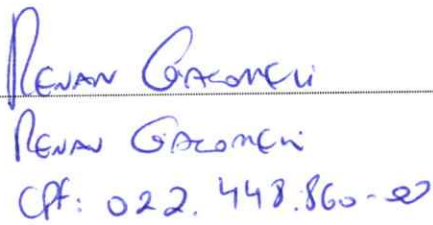 Renan Giacomeli
Renan Giacomeli
CPF: 022.448.860-00